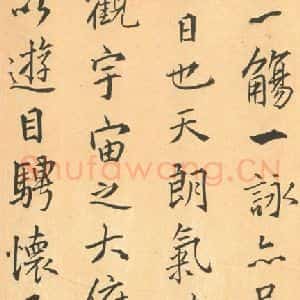 一觴一詠亦
日也天朗氣
觀宇宙之大俯
以遊目騁懷
Shufawang.CN